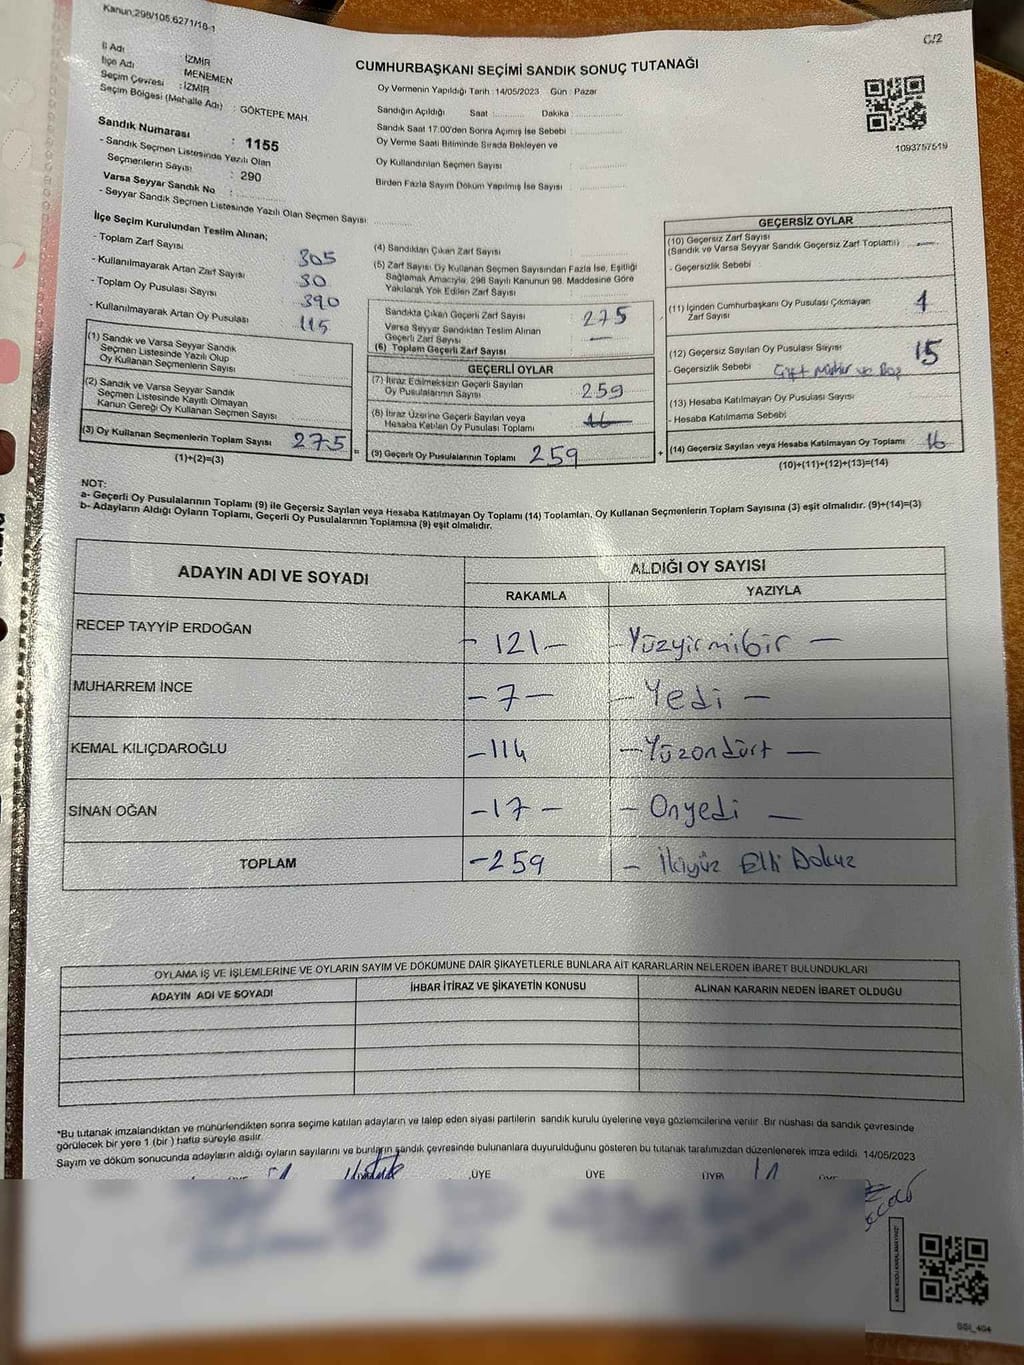 Kanun:298/105,6271/18-1
C/2
İl Adı : İZMİR
İlçe Adı : MENEMEN
Seçim Çevresi : İZMİR
Seçim Bölgesi (Mahalle Adı) : GÖKTEPE MAH.
Sandık Numarası : 1155
- Sandık Seçmen Listesinde Yazılı Olan
Seçmenlerin Sayısı : 290
Varsa Seyyar Sandık No :
- Seyyar Sandık Seçmen Listesinde Yazılı Olan Seçmen Sayısı:
CUMHURBAŞKANI SEÇİMİ SANDIK SONUÇ TUTANAĞI
Oy Vermenin Yapıldığı Tarih : 14/05/2023 Gün : Pazar
Sandığın Açıldığı Saat : Dakika :
Sandık Saat 17:00'den Sonra Açımış İse Sebebi :
Oy Verme Saati Bitiminde Sırada Bekleyen ve
Oy Kullandırılan Seçmen Sayısı :
Birden Fazla Sayım Döküm Yapılmış İse Sayısı :
1093757519
İlçe Seçim Kurulundan Teslim Alınan;
- Toplam Zarf Sayısı 305
- Kullanılmayarak Artan Zarf Sayısı 30
- Toplam Oy Pusulası Sayısı 390
- Kullanılmayarak Artan Oy Pusulası 115
(1) Sandık ve Varsa Seyyar Sandık
Seçmen Listesinde Yazılı Olup
Oy Kullanan Seçmenlerin Sayısı
(2) Sandık ve Varsa Seyyar Sandık
Seçmen Listesinde Kayıtlı Olmayan
Kanun Gereği Oy Kullanan Seçmen Sayısı
(3) Oy Kullanan Seçmenlerin Toplam Sayısı 275
(1)+(2)=(3)
(4) Sandıktan Çıkan Zarf Sayısı
(5) Zarf Sayısı Oy Kullanan Seçmen Sayısından Fazla İse, Eşitliği
Sağlamak Amacıyla, 298 Sayılı Kanunun 98. Maddesine Göre
Yakılarak Yok Edilen Zarf Sayısı
Sandıkta Çıkan Geçerli Zarf Sayısı 275
Varsa Seyyar Sandıktan Teslim Alınan
Geçerli Zarf Sayısı —
(6) Toplam Geçerli Zarf Sayısı
GEÇERLİ OYLAR
(7) İtiraz Edilmeksizin Geçerli Sayılan
Oy Pusulalarının Sayısı 259
(8) İtiraz Üzerine Geçerli Sayılan veya
Hesaba Katılan Oy Pusulası Toplamı 16
(9) Geçerli Oy Pusulalarının Toplamı 259
=
+
GEÇERSİZ OYLAR
(10) Geçersiz Zarf Sayısı
(Sandık ve Varsa Seyyar Sandık Geçersiz Zarf Toplamı) —
- Geçersizlik Sebebi
(11) İçinden Cumhurbaşkanı Oy Pusulası Çıkmayan
Zarf Sayısı 1
(12) Geçersiz Sayılan Oy Pusulası Sayısı 15
- Geçersizlik Sebebi Çift Mühür ve Boş
(13) Hesaba Katılmayan Oy Pusulası Sayısı
- Hesaba Katılmama Sebebi
(14) Geçersiz Sayılan veya Hesaba Katılmayan Oy Toplamı 16
(10)+(11)+(12)+(13)=(14)
NOT:
a- Geçerli Oy Pusulalarının Toplamı (9) ile Geçersiz Sayılan veya Hesaba Katılmayan Oy Toplamı (14) Toplamları, Oy Kullanan Seçmenlerin Toplam Sayısına (3) eşit olmalıdır. (9)+(14)=(3)
b- Adayların Aldığı Oyların Toplamı, Geçerli Oy Pusulalarının Toplamına (9) eşit olmalıdır.
ADAYIN ADI VE SOYADI
ALDIĞI OY SAYISI
RAKAMLA YAZIYLA
RECEP TAYYİP ERDOĞAN - 121 - - Yüzyirmibir -
MUHARREM İNCE - 7 - - Yedi -
KEMAL KILIÇDAROĞLU - 114 - Yüzondört -
SİNAN OĞAN - 17 - - Onyedi -
TOPLAM - 259 - İkiyüz Elli Dokuz
OYLAMA İŞ VE İŞLEMLERİNE VE OYLARIN SAYIM VE DÖKÜMÜNE DAİR ŞİKAYETLERLE BUNLARA AİT KARARLARIN NELERDEN İBARET BULUNDUKLARI
ADAYIN ADI VE SOYADI İHBAR İTİRAZ VE ŞİKAYETİN KONUSU ALINAN KARARIN NEDEN İBARET OLDUĞU
*Bu tutanak imzalandıktan ve mühürlendikten sonra seçime katılan adayların ve talep eden siyasi partilerin sandık kurulu üyelerine veya gözlemcilerine verilir. Bir nüshası da sandık çevresinde
görülecek bir yere 1 (bir ) hafta süreyle asılır.
Sayım ve döküm sonucunda adayların aldığı oyların sayılarını ve bunların sandık çevresinde bulunanlara duyurulduğunu gösteren bu tutanak tarafımızdan düzenlenerek imza edildi. 14/05/2023
ÜYE ÜYE ÜYE ÜYE